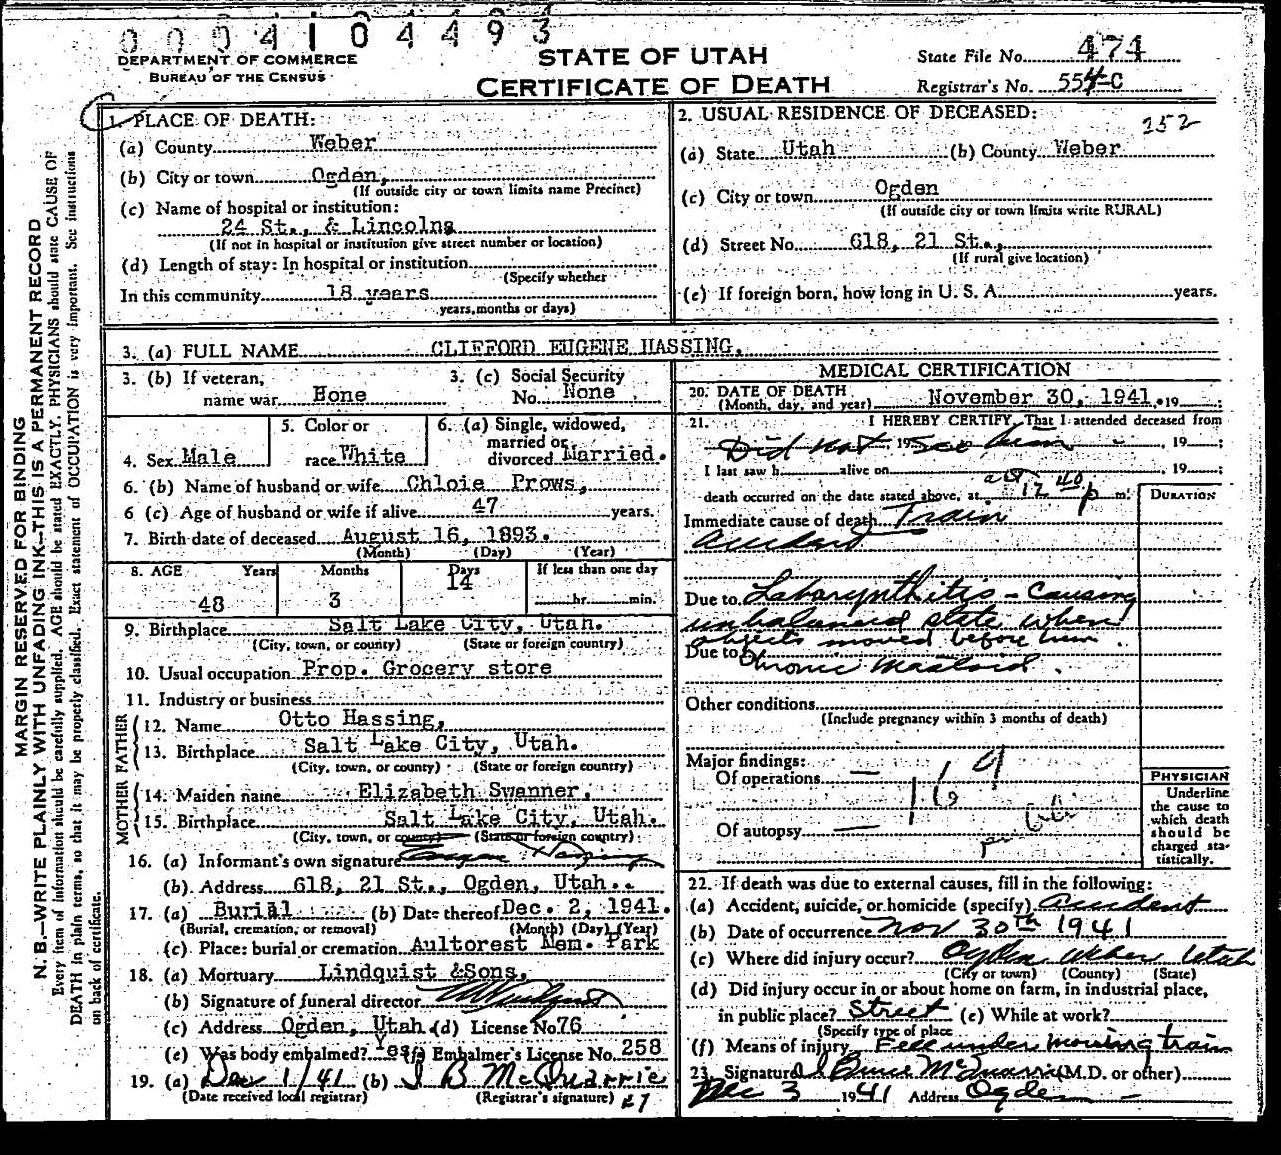 0004104493
DEPARTMENT OF COMMERCE
BUREAU OF THE CENSUS
STATE OF UTAH
CERTIFICATE OF DEATH
State File No. 474
Registrar's No. 554-C
1. PLACE OF DEATH:
(a) County Weber
(b) City or town Ogden,
(If outside city or town limits name Precinct)
(c) Name of hospital or institution:
24 St., & Lincolna
(If not in hospital or institution give street number or location)
(d) Length of stay: In hospital or institution
(Specify whether
In this community 18 years
years, months or days)
2. USUAL RESIDENCE OF DECEASED:
252
(a) State Utah (b) County Weber
(c) City or town Ogden
(If outside city or town limits write RURAL)
(d) Street No. 618, 21 St.,
(If rural give location)
(e) If foreign born, how long in U. S. A. years.
3. (a) FULL NAME CLIFFORD EUGENE HASSING,
3. (b) If veteran,
name war Hone
3. (c) Social Security
No. None
4. Sex Male
5. Color or
race White
6. (a) Single, widowed,
married or
divorced Married.
6. (b) Name of husband or wife Chloie Prows,
6 (c) Age of husband or wife if alive 47 years.
7. Birth date of deceased August 16, 1893.
(Month) (Day) (Year)
8. AGE Years Months Days If less than one day
48 3 14 hr. min.
9. Birthplace Salt Lake City, Utah.
(City, town, or county) (State or foreign country)
10. Usual occupation Prop. Grocery store
11. Industry or business
FATHER
12. Name Otto Hassing,
13. Birthplace Salt Lake City, Utah.
(City, town, or county) (State or foreign country)
MOTHER
14. Maiden name Elizabeth Swanner,
15. Birthplace Salt Lake City, Utah.
(City, town, or county) (State or foreign country)
16. (a) Informant's own signature Eugene Hassing
(b) Address 618, 21 St., Ogden, Utah..
17. (a) Burial (b) Date thereof Dec. 2, 1941.
(Burial, cremation, or removal) (Month) (Day) (Year)
(c) Place: burial or cremation Aultorest Mem. Park
18. (a) Mortuary Lindquist &Sons,
(b) Signature of funeral director
(c) Address Ogden, Utah (d) License No. 76
(e) Was body embalmed? Yes (f) Embalmer's License No. 258
19. (a) Dec 1/41 (b) J B McQuarrie
(Date received local registrar) (Registrar's signature)
MEDICAL CERTIFICATION
20. DATE OF DEATH
(Month, day, and year) November 30, 1941. 19 ;
21. I HEREBY CERTIFY, That I attended deceased from
Did not 19 see him , 19 ;
I last saw h alive on , 19 ;
death occurred on the date stated above, at 12 40 p m.
DURATION
Immediate cause of death Train
accident
Due to Labarynthitis - causing
unbalanced state when
objects moved before him
Due to Chronic Mastoid.
Other conditions
(Include pregnancy within 3 months of death)
Major findings:
Of operations —
169
Of autopsy —
PHYSICIAN
Underline
the cause to
which death
should be
charged sta-
tistically.
22. If death was due to external causes, fill in the following:
(a) Accident, suicide, or homicide (specify) Accident
(b) Date of occurrence Nov 30th 1941
(c) Where did injury occur? Ogden Weber Utah
(City or town) (County) (State)
(d) Did injury occur in or about home on farm, in industrial place,
in public place? Street (e) While at work?
(Specify type of place
(f) Means of injury Fell under moving train
23. Signature J Bruce McQuarrie (M.D. or other)
Dec 3 1941 Address Ogden
MARGIN RESERVED FOR BINDING
N. B.—WRITE PLAINLY WITH UNFADING INK—THIS IS A PERMANENT RECORD
Every item of information should be carefully supplied. AGE should be stated EXACTLY. PHYSICIANS should state CAUSE OF
DEATH in plain terms, so that it may be properly classified. Exact statement of OCCUPATION is very important. See instructions
on back of certificate.